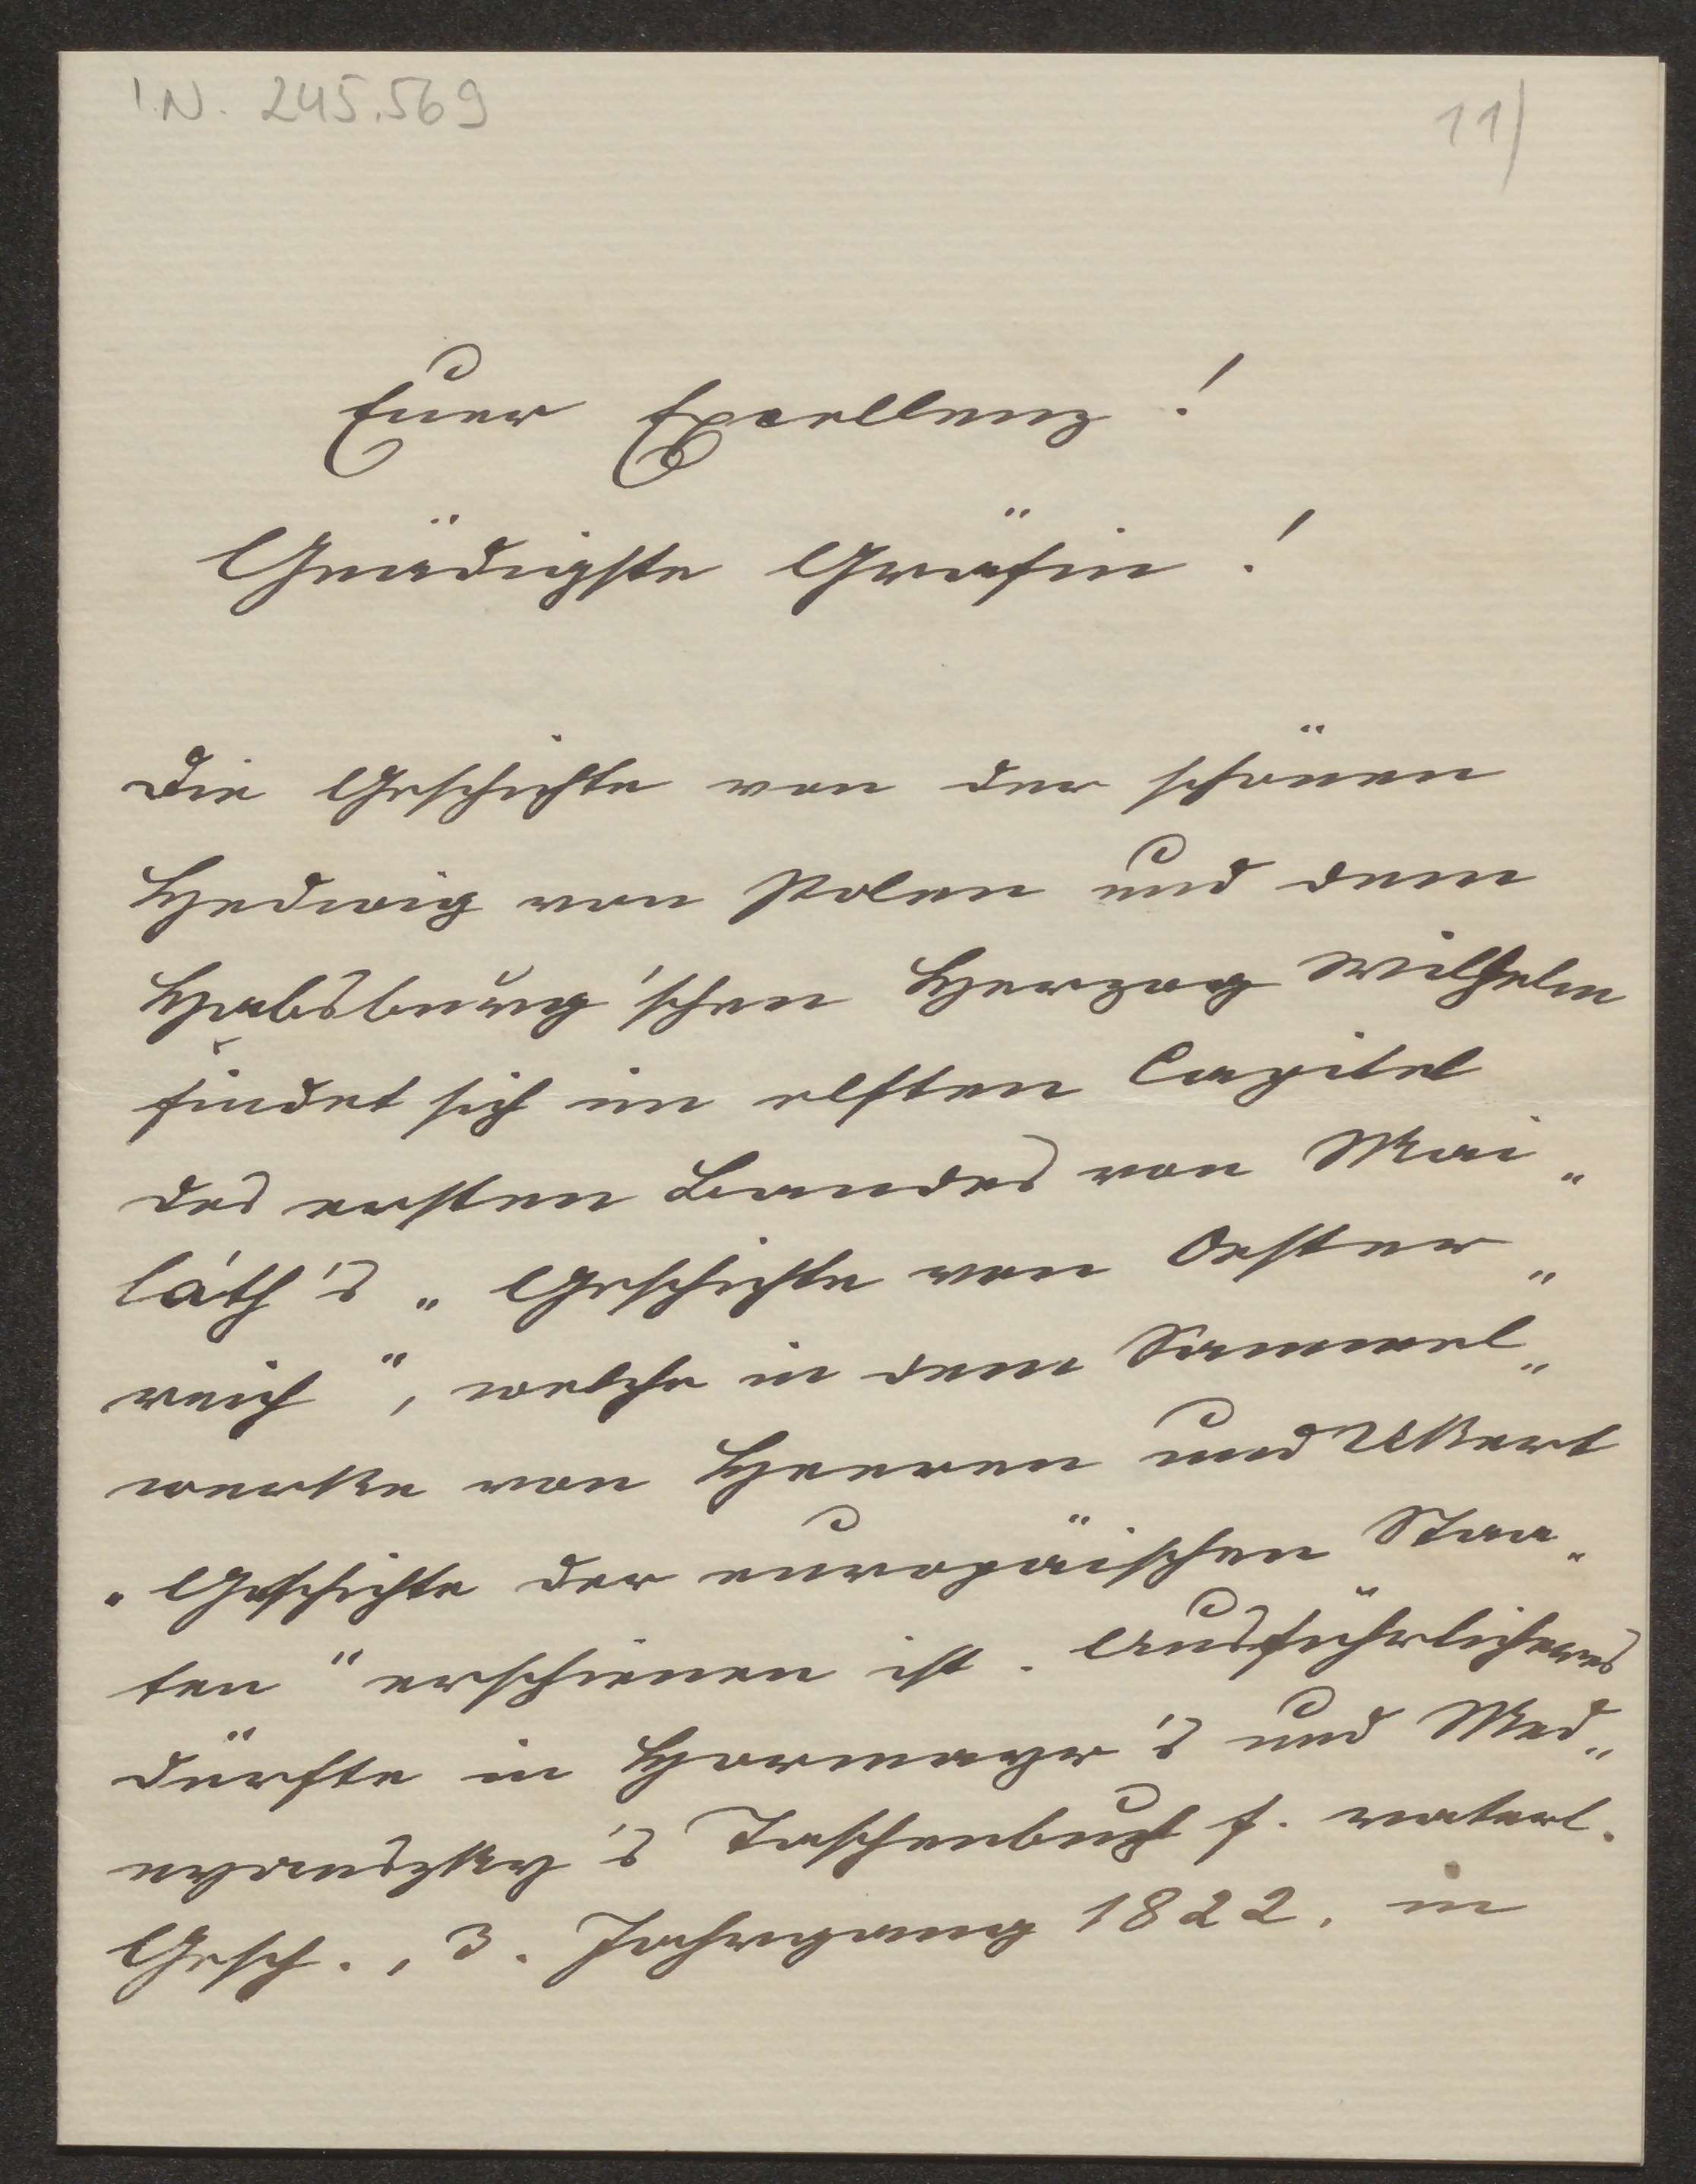 I.N. 245.569
11)
Euer Excellenz!
Gnädigste Gräfin!
Die Geschichte von der schönen
Hedwig von Polen und dem
Habsburg'schen Herzog Wilhelm
findet sich im elften Capitel
des ersten Bandes von Mai„
láth's „Geschichte von Oester„
reich", welche in dem Sammel„
werke von Heeren und Ukert
„Geschichte der europäischen Staa„
ten" erschienen ist. Ausführlicheres
dürfte in Hormayr's und Med„
nyanszky's Taschenbuch f. vaterl.
Gesch., 3. Jahrgang 1822. in